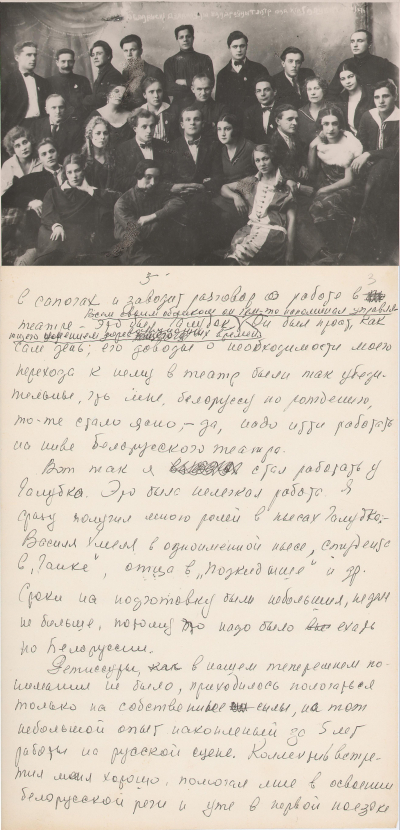 5-
3
в сапогах и заводит разговор о работе в
Всем своим обликом он
театре – Это был Галубок. Он был прост, как
сам день; его доводы о необходимости моего
перехода к нему в театр были так убеди-
тельные, что мне, белоруссу по рождению,
то-же стало ясно, – да, надо идти работать
на ниве белорусского театра.
Вот так я стал работать у
Галубка. Это была нелегкая работа. Я
сразу получил много ролей в пьесах Галубка,–
Василя Хмеля в одноименной пьесе, студента
в „Ганке", отца в „Подкидыше" и др.
Сроки на подготовку были небольшия, неделя
не больше, потому что надо было ехать
по Белоруссии.
Режиссуры, как в нашем теперешнем по-
нимании не было, приходилось полагаться
только на собственные силы, на тот
небольшой опыт накопленный за 5 лет
работы на русской сцене. Коллектив встре-
тил меня хорошо, помогал мне в освоении
белорусской речи и уже в первой поездке